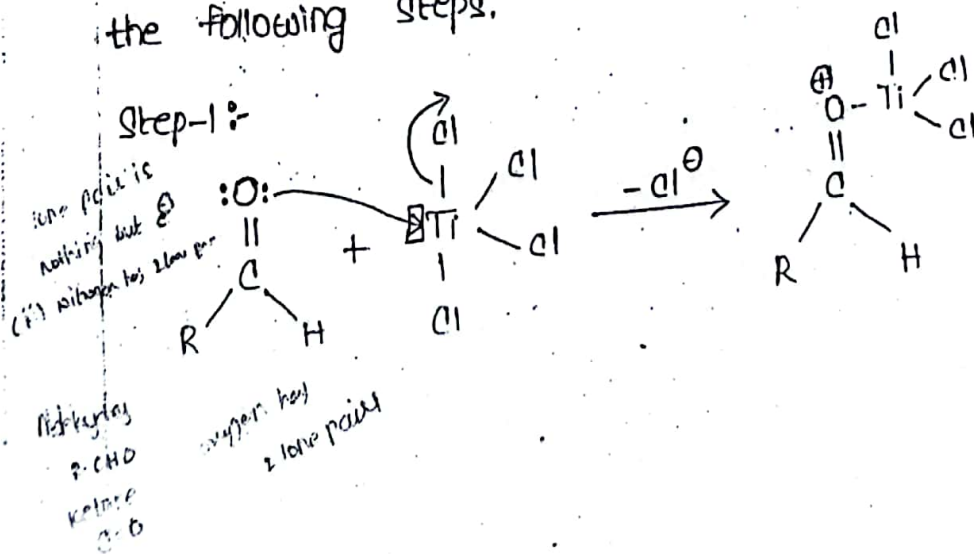 the following steps.
Step-1:-
lone pair is
nothing but
(ii) nitrogen has 2 lone
:O:
||
C
R H
+
Cl
Ti Cl
Cl
Cl
- Cl⊖
Cl
⊕
O - Ti Cl
Cl
||
C
R H
R-CHO
ketone
oxygen has
2 lone pairs